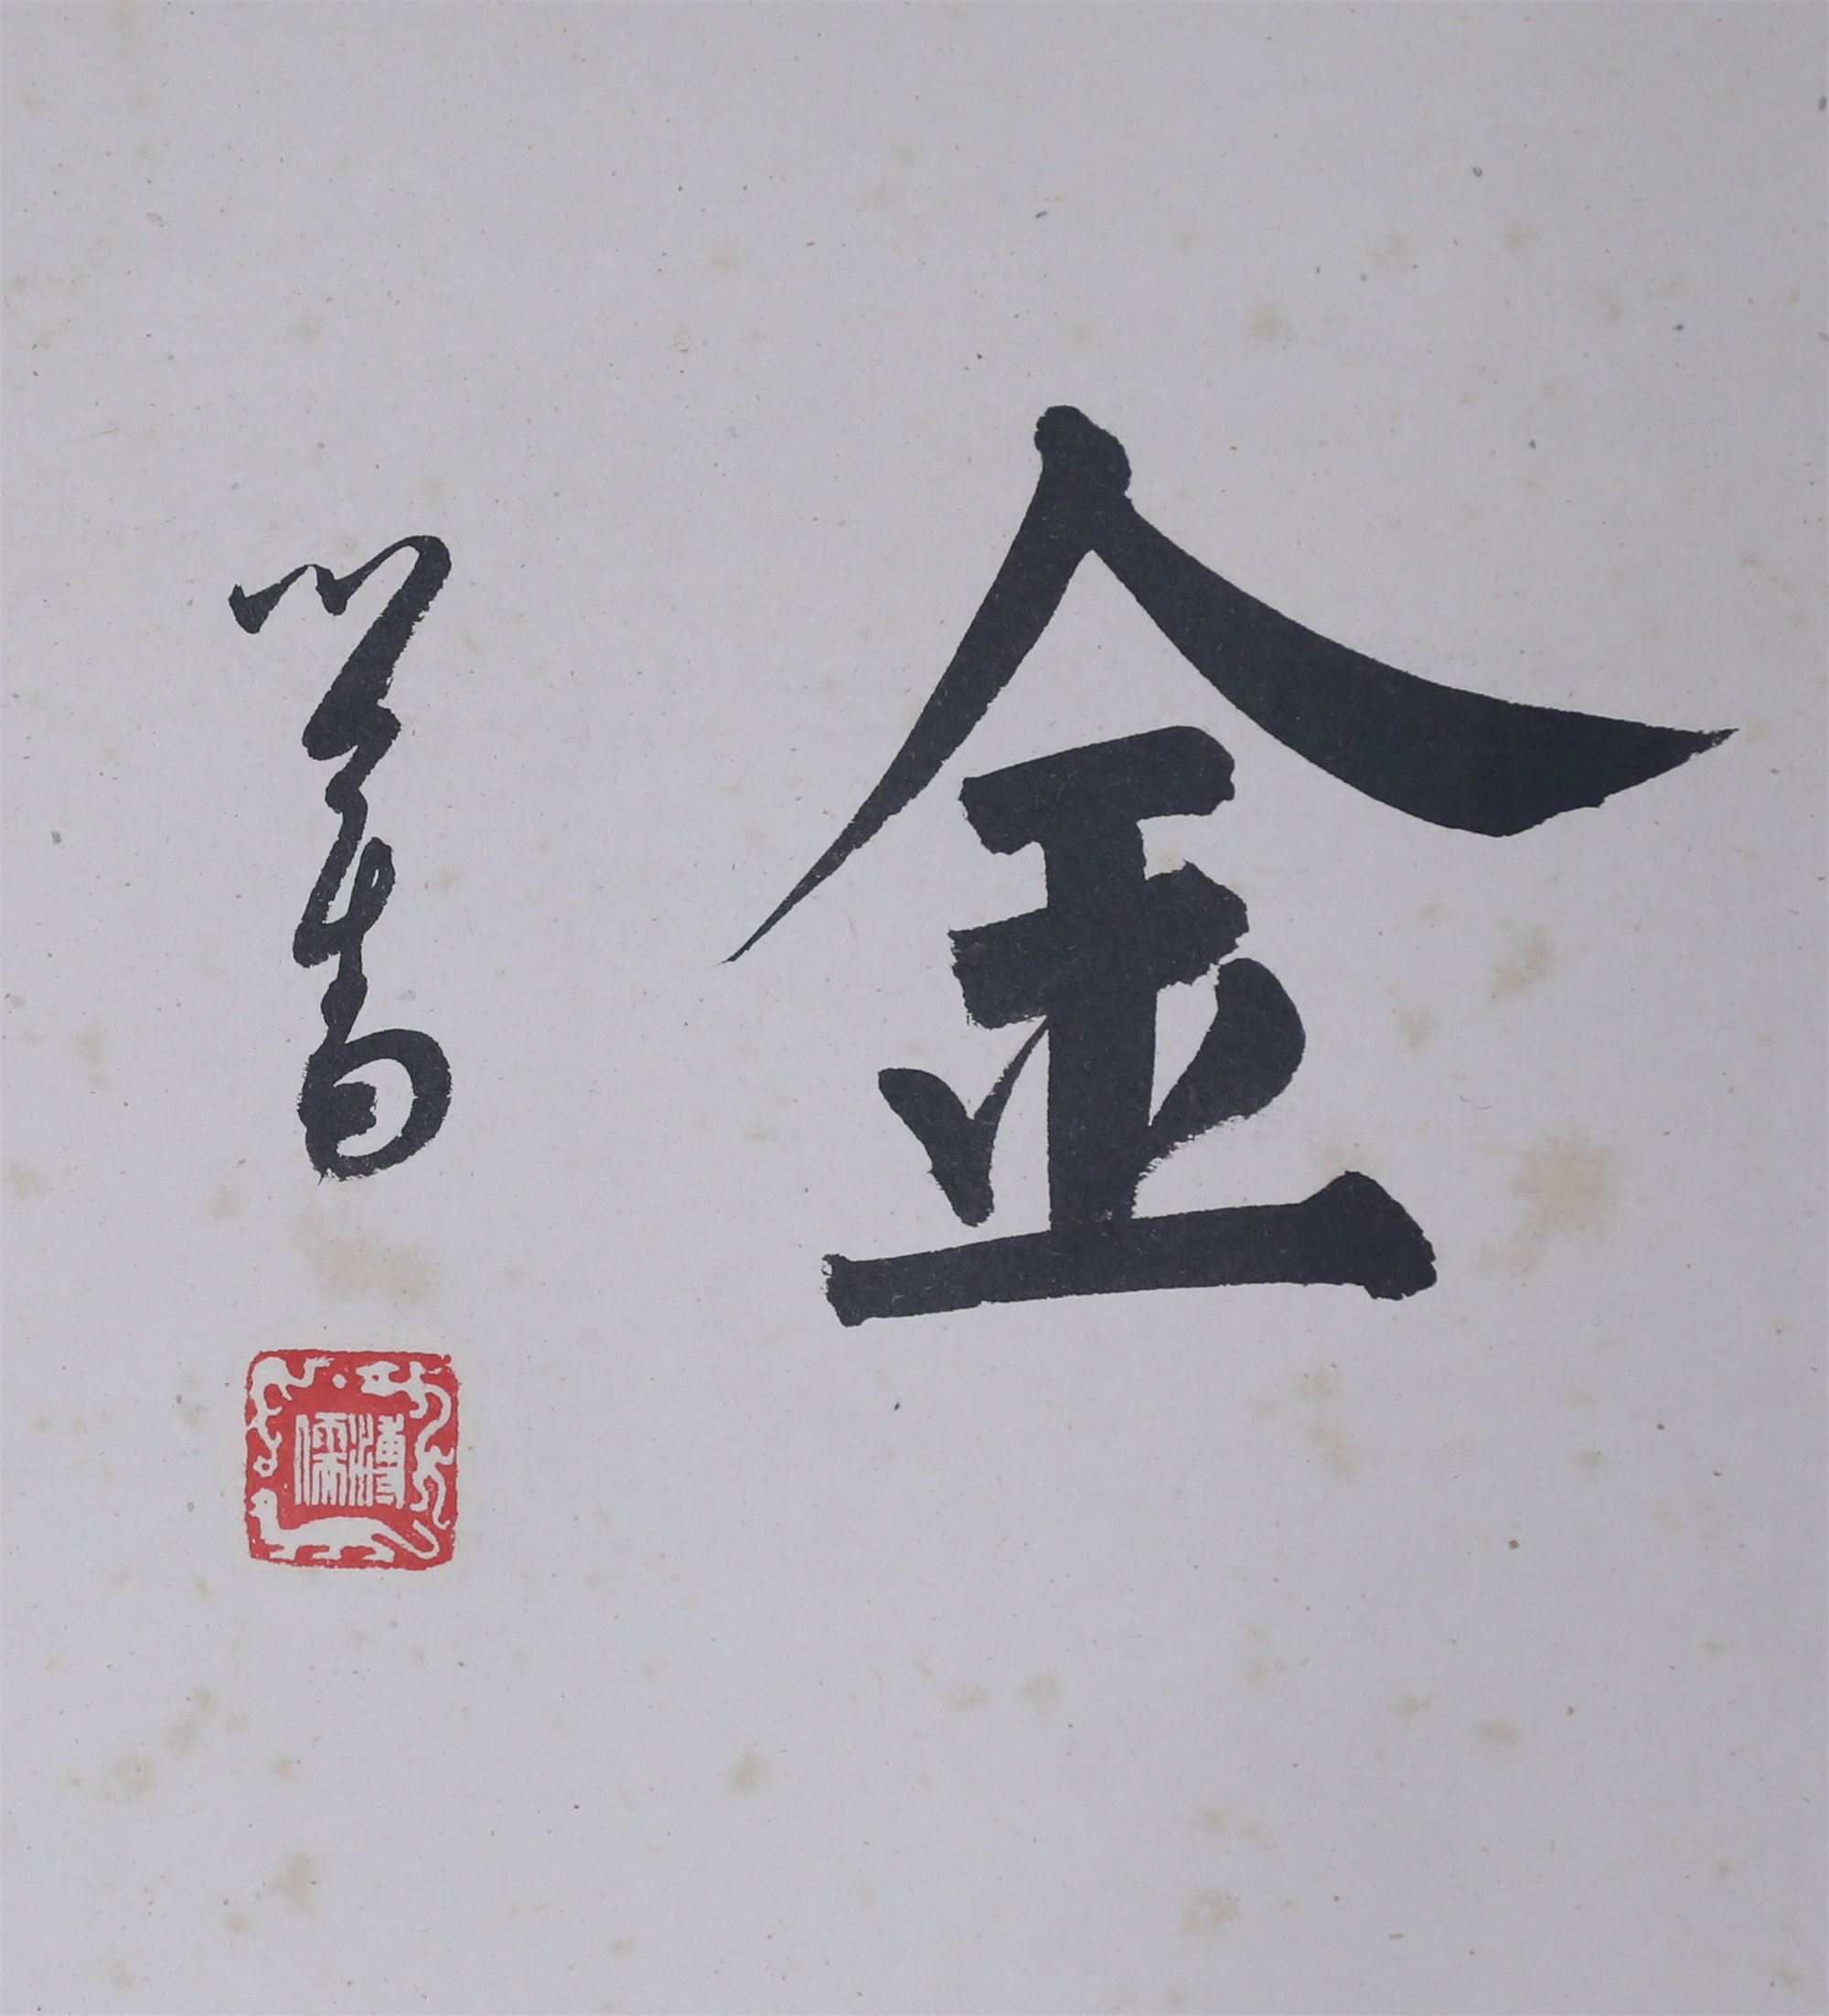 金
心畬
溥儒